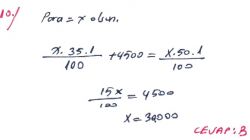 10.)
Para = x olsun.
x.35.1/100 + 4500 = x.50.1/100
15x/100 = 4500
x = 30000
CEVAP: B